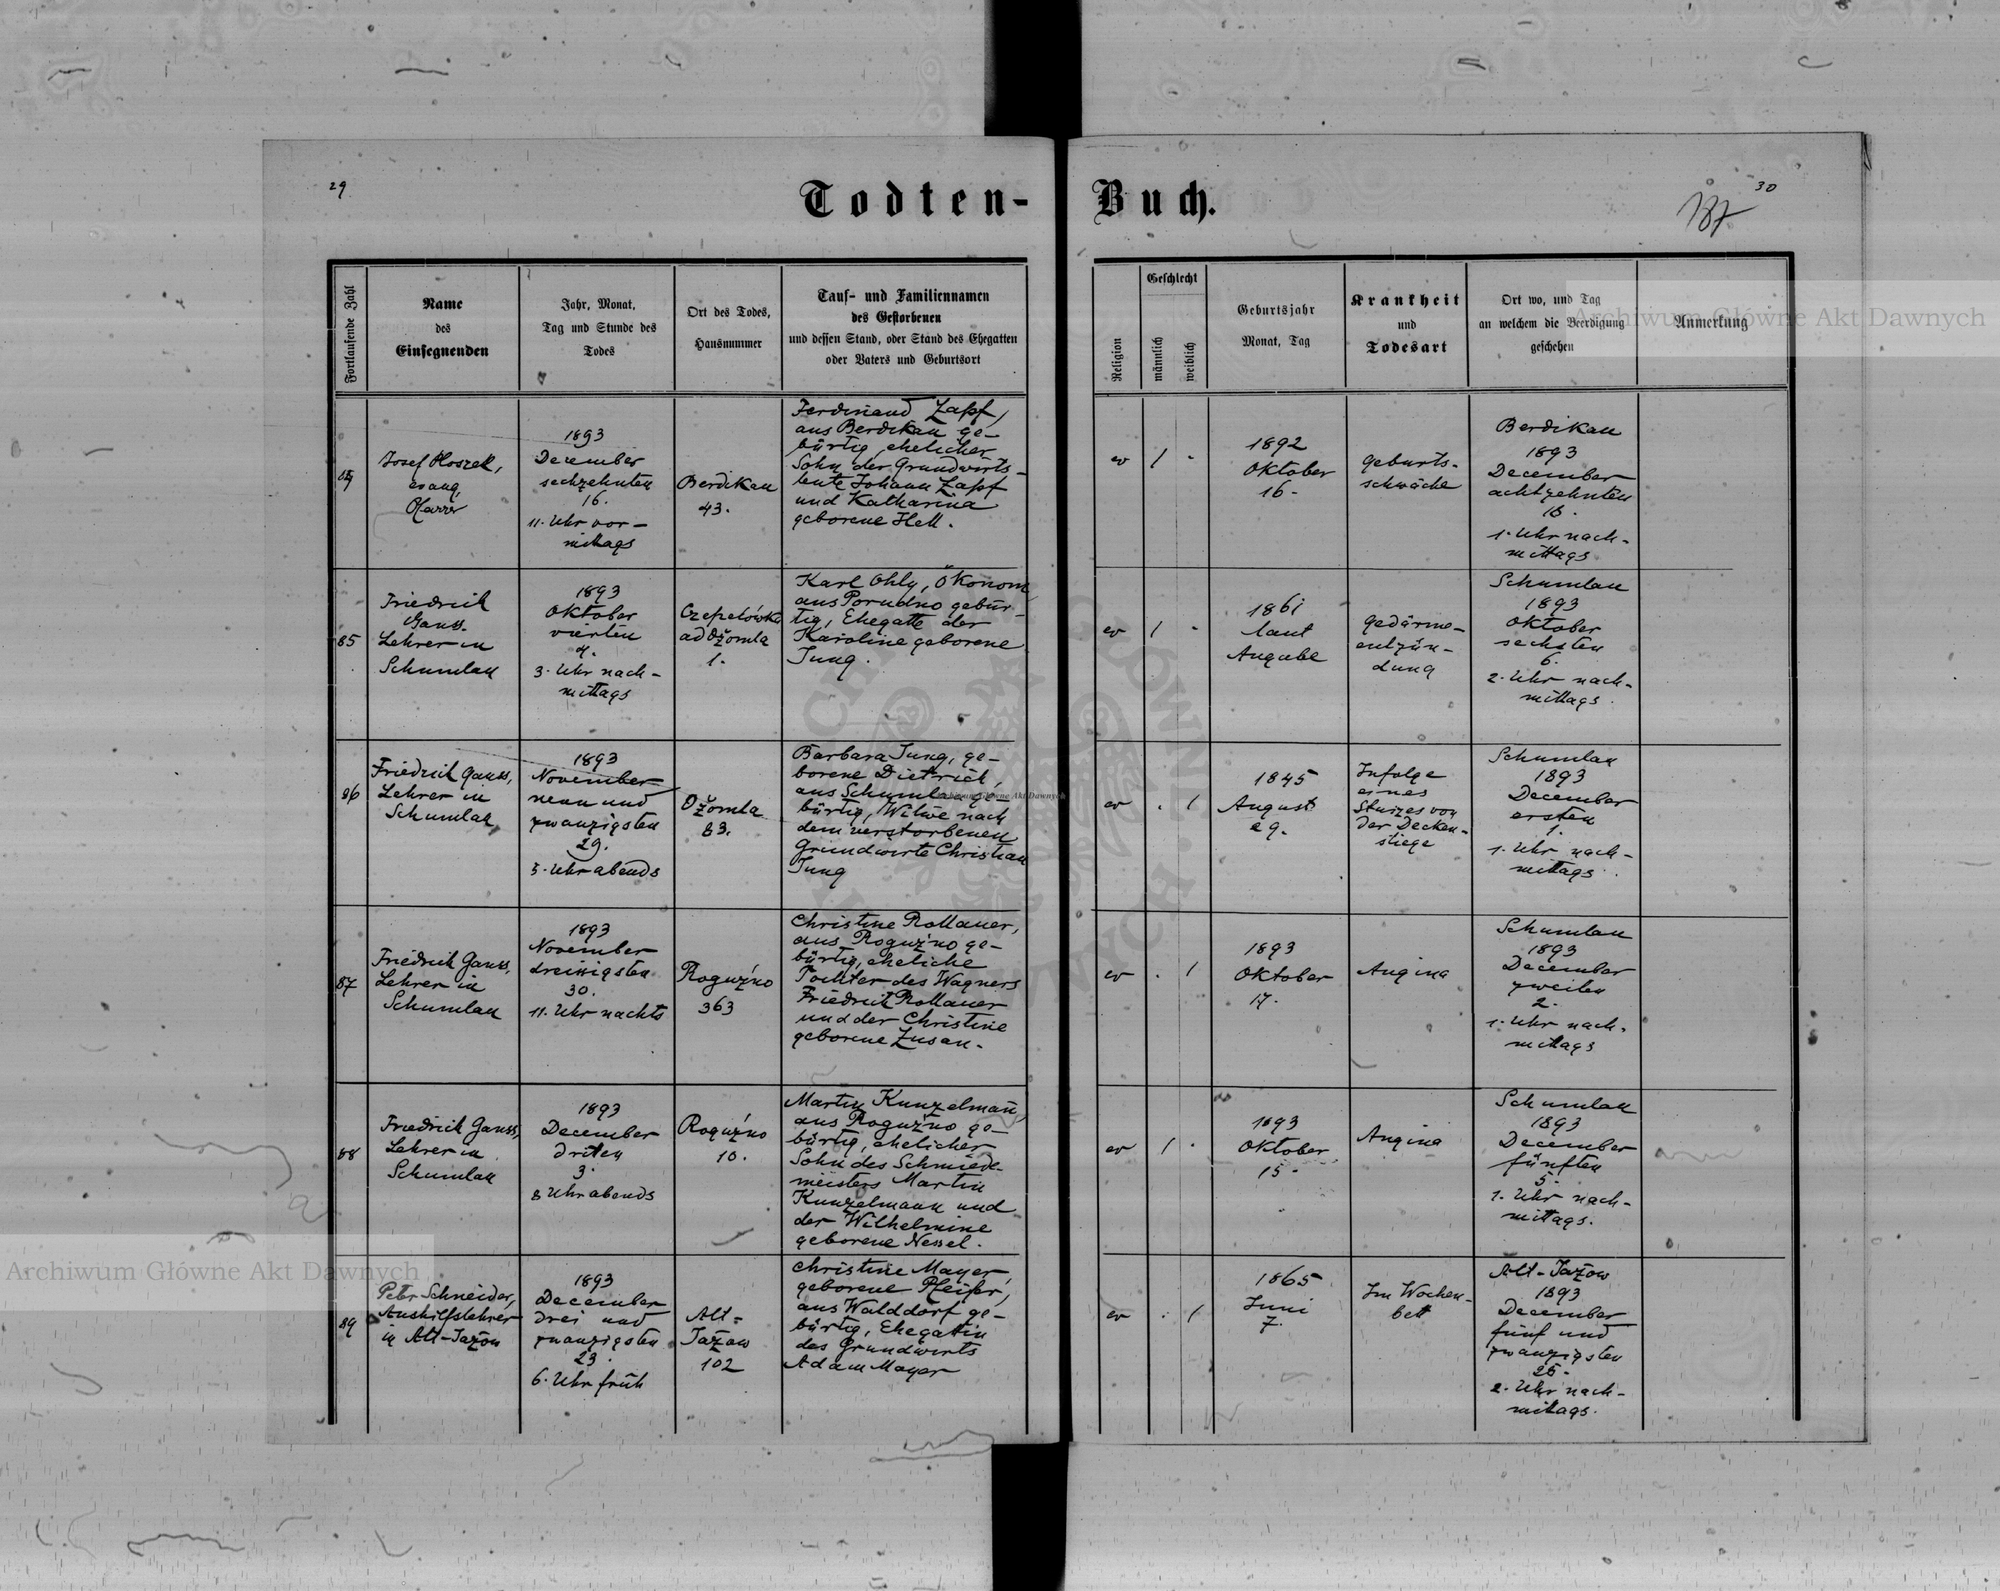 29
Todten-
Buch.
30
137
Fortlaufende Zahl
Name
des
Einsegnenden
Jahr, Monat,
Tag und Stunde des
Todes
Ort des Todes,
Hausnummer
Tauf- und Familiennamen
des Gestorbenen
und dessen Stand, oder Stand des Ehegatten
oder Vaters und Geburtsort
Religion
Geschlecht
männlich
weiblich
Geburtsjahr
Monat, Tag
Krankheit
und
Todesart
Ort wo, und Tag
an welchem die Beerdigung
geschehen
Anmerkung
Josef Ploszek,
evang.
Pfarrer
1893
December
sechzehnten
16.
11. Uhr vor-
mittags
Berdikau
43.
Ferdinand Zapf,
aus Berdikau ge-
bürtig, ehelicher
Sohn der Grundwirts-
leute Johann Zapf
und Katharina
geborene Hell.
ev / -
1892
Oktober
16.
Geburts-
schwäche
Berdikau
1893
December
achtzehnten
18.
1. Uhr nach-
mittags
85
Friedrich
Gauss.
Lehrer in
Schumlau
1893
Oktober
vierten
4.
3. Uhr nach-
mittags
Czepelówka
ad Ożomla
1.
Karl Ohly, Ökonom
aus Porudno gebür-
tig, Ehegatte der
Karoline geborene
Jung.
ev / -
1861
laut
Angabe
Gedärme-
entzün-
dung
Schumlau
1893
Oktober
sechsten
6.
2. Uhr nach-
mittags.
86
Friedrich Gauss,
Lehrer in
Schumlau
1893
November
neun und
zwanzigsten
29.
5. Uhr abends
Ożomla
83.
Barbara Jung, ge-
borene Dietrich,
aus Schumlau ge-
bürtig, Witwe nach
dem verstorbenen
Grundwirte Christian
Jung
ev . /
1845
August
29.
Infolge
eines
Sturzes von
der Decken-
stiege
Schumlau
1893
December
ersten
1.
1. Uhr nach-
mittags.
87
Friedrich Gauss,
Lehrer in
Schumlau
1893
November
dreissigsten
30.
11. Uhr nachts
Roguźno
363
Christine Rollauer,
aus Roguźno ge-
bürtig, eheliche
Tochter des Wagners
Friedrich Rollauer
und der Christine
geborene Zusan.
ev . /
1893
Oktober
17.
Angina
Schumlau
1893
December
zweiten
2.
1. Uhr nach-
mittags
88
Friedrich Gauss,
Lehrer in
Schumlau
1893
December
dritten
3.
8 Uhr abends
Roguźno
10.
Martin Kunzelmann,
aus Roguźno ge-
bürtig, ehelicher
Sohn des Schmiede-
meisters Martin
Kunzelmann und
der Wilhelmine
geborene Nessel.
ev / .
1893
Oktober
15.
Angina
Schumlau
1893
December
fünften
5.
1. Uhr nach-
mittags.
89
Peter Schneider,
Aushilfslehrer
in Alt-Jazow
1893
December
drei und
zwanzigsten
23.
6. Uhr früh
Alt-
Jazow
102
Christine Mayer,
geborene Pfeifer,
aus Walddorf ge-
bürtig, Ehegattin
des Grundwirts
Adam Mayer
ev . /
1865
Juni
7.
Im Wochen-
bett
Alt-Jazow
1893
December
fünf und
zwanzigsten
25.
2. Uhr nach-
mittags.
Archiwum Główne Akt Dawnych
Archiwum Główne Akt Dawnych
Archiwum Główne Akt Dawnych